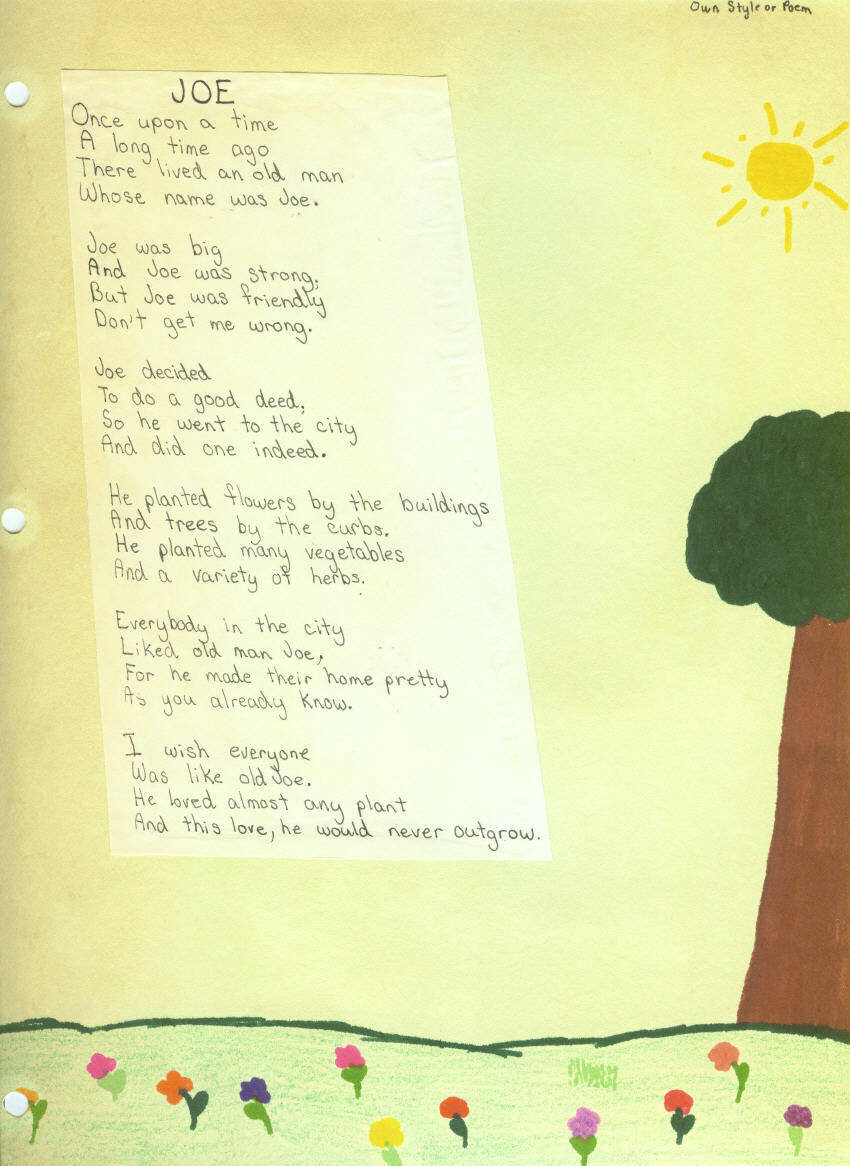 Own Style or Poem
JOE
Once upon a time
A long time ago
There lived an old man
Whose name was Joe.
Joe was big
And Joe was strong;
But Joe was friendly
Don't get me wrong.
Joe decided
To do a good deed;
So he went to the city
And did one indeed.
He planted flowers by the buildings
And trees by the curbs.
He planted many vegetables
And a variety of herbs.
Everybody in the city
Liked old man Joe,
For he made their home pretty
As you already know.
I wish everyone
Was like old Joe.
He loved almost any plant
And this love, he would never outgrow.